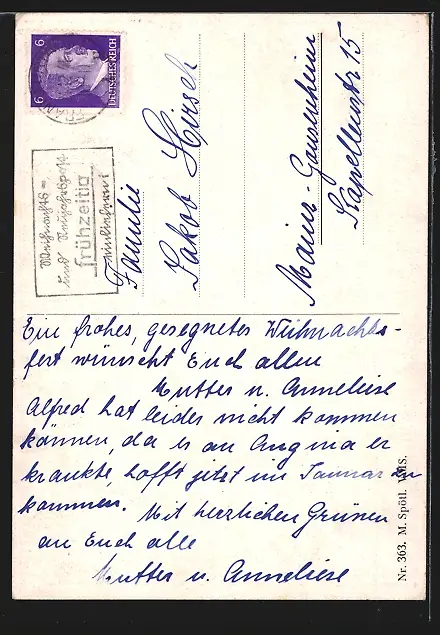 6 6
DEUTSCHES REICH
Weihnachts=
und Neujahrspost
frühzeitig
einliefern!
Familie
Jakob Hirsch
Mainz-Gonsenheim
Kapellenstr 15
Ein frohes, gesegnetes Weihnachts-
fest wünscht Euch allen
Mutter u. Anneliese
Alfred hat leider nicht kommen
können, da er an Angina er
krankte, hofft jetzt im Januar zu
kommen. Mit herzlichen Grüssen
an Euch alle
Mutter u. Anneliese
Nr. 363. M. Spötl. IMS.